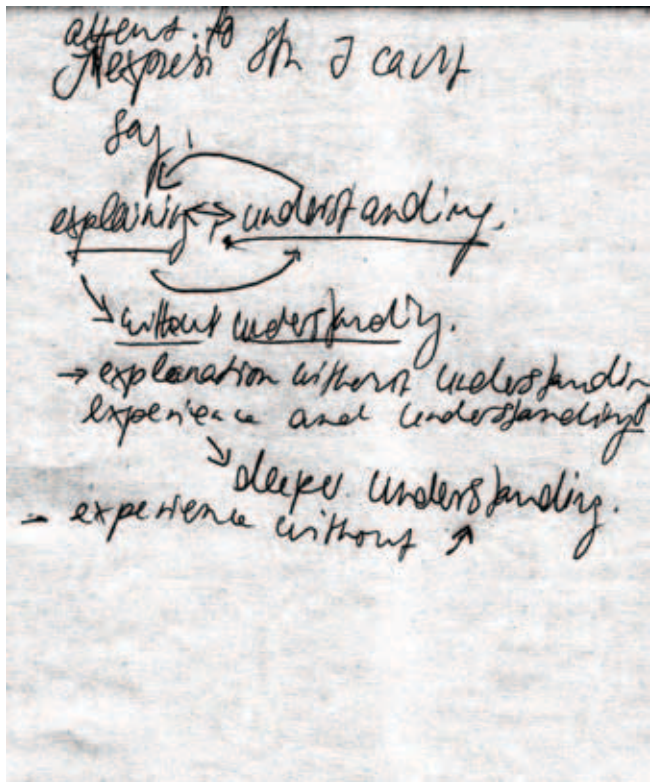 express sth I can't
say!
explaining ↔ understanding.
↘ without understanding.
→ explanation without understandin
experience and understanding
↘ deeper understanding.
- experience without ↗